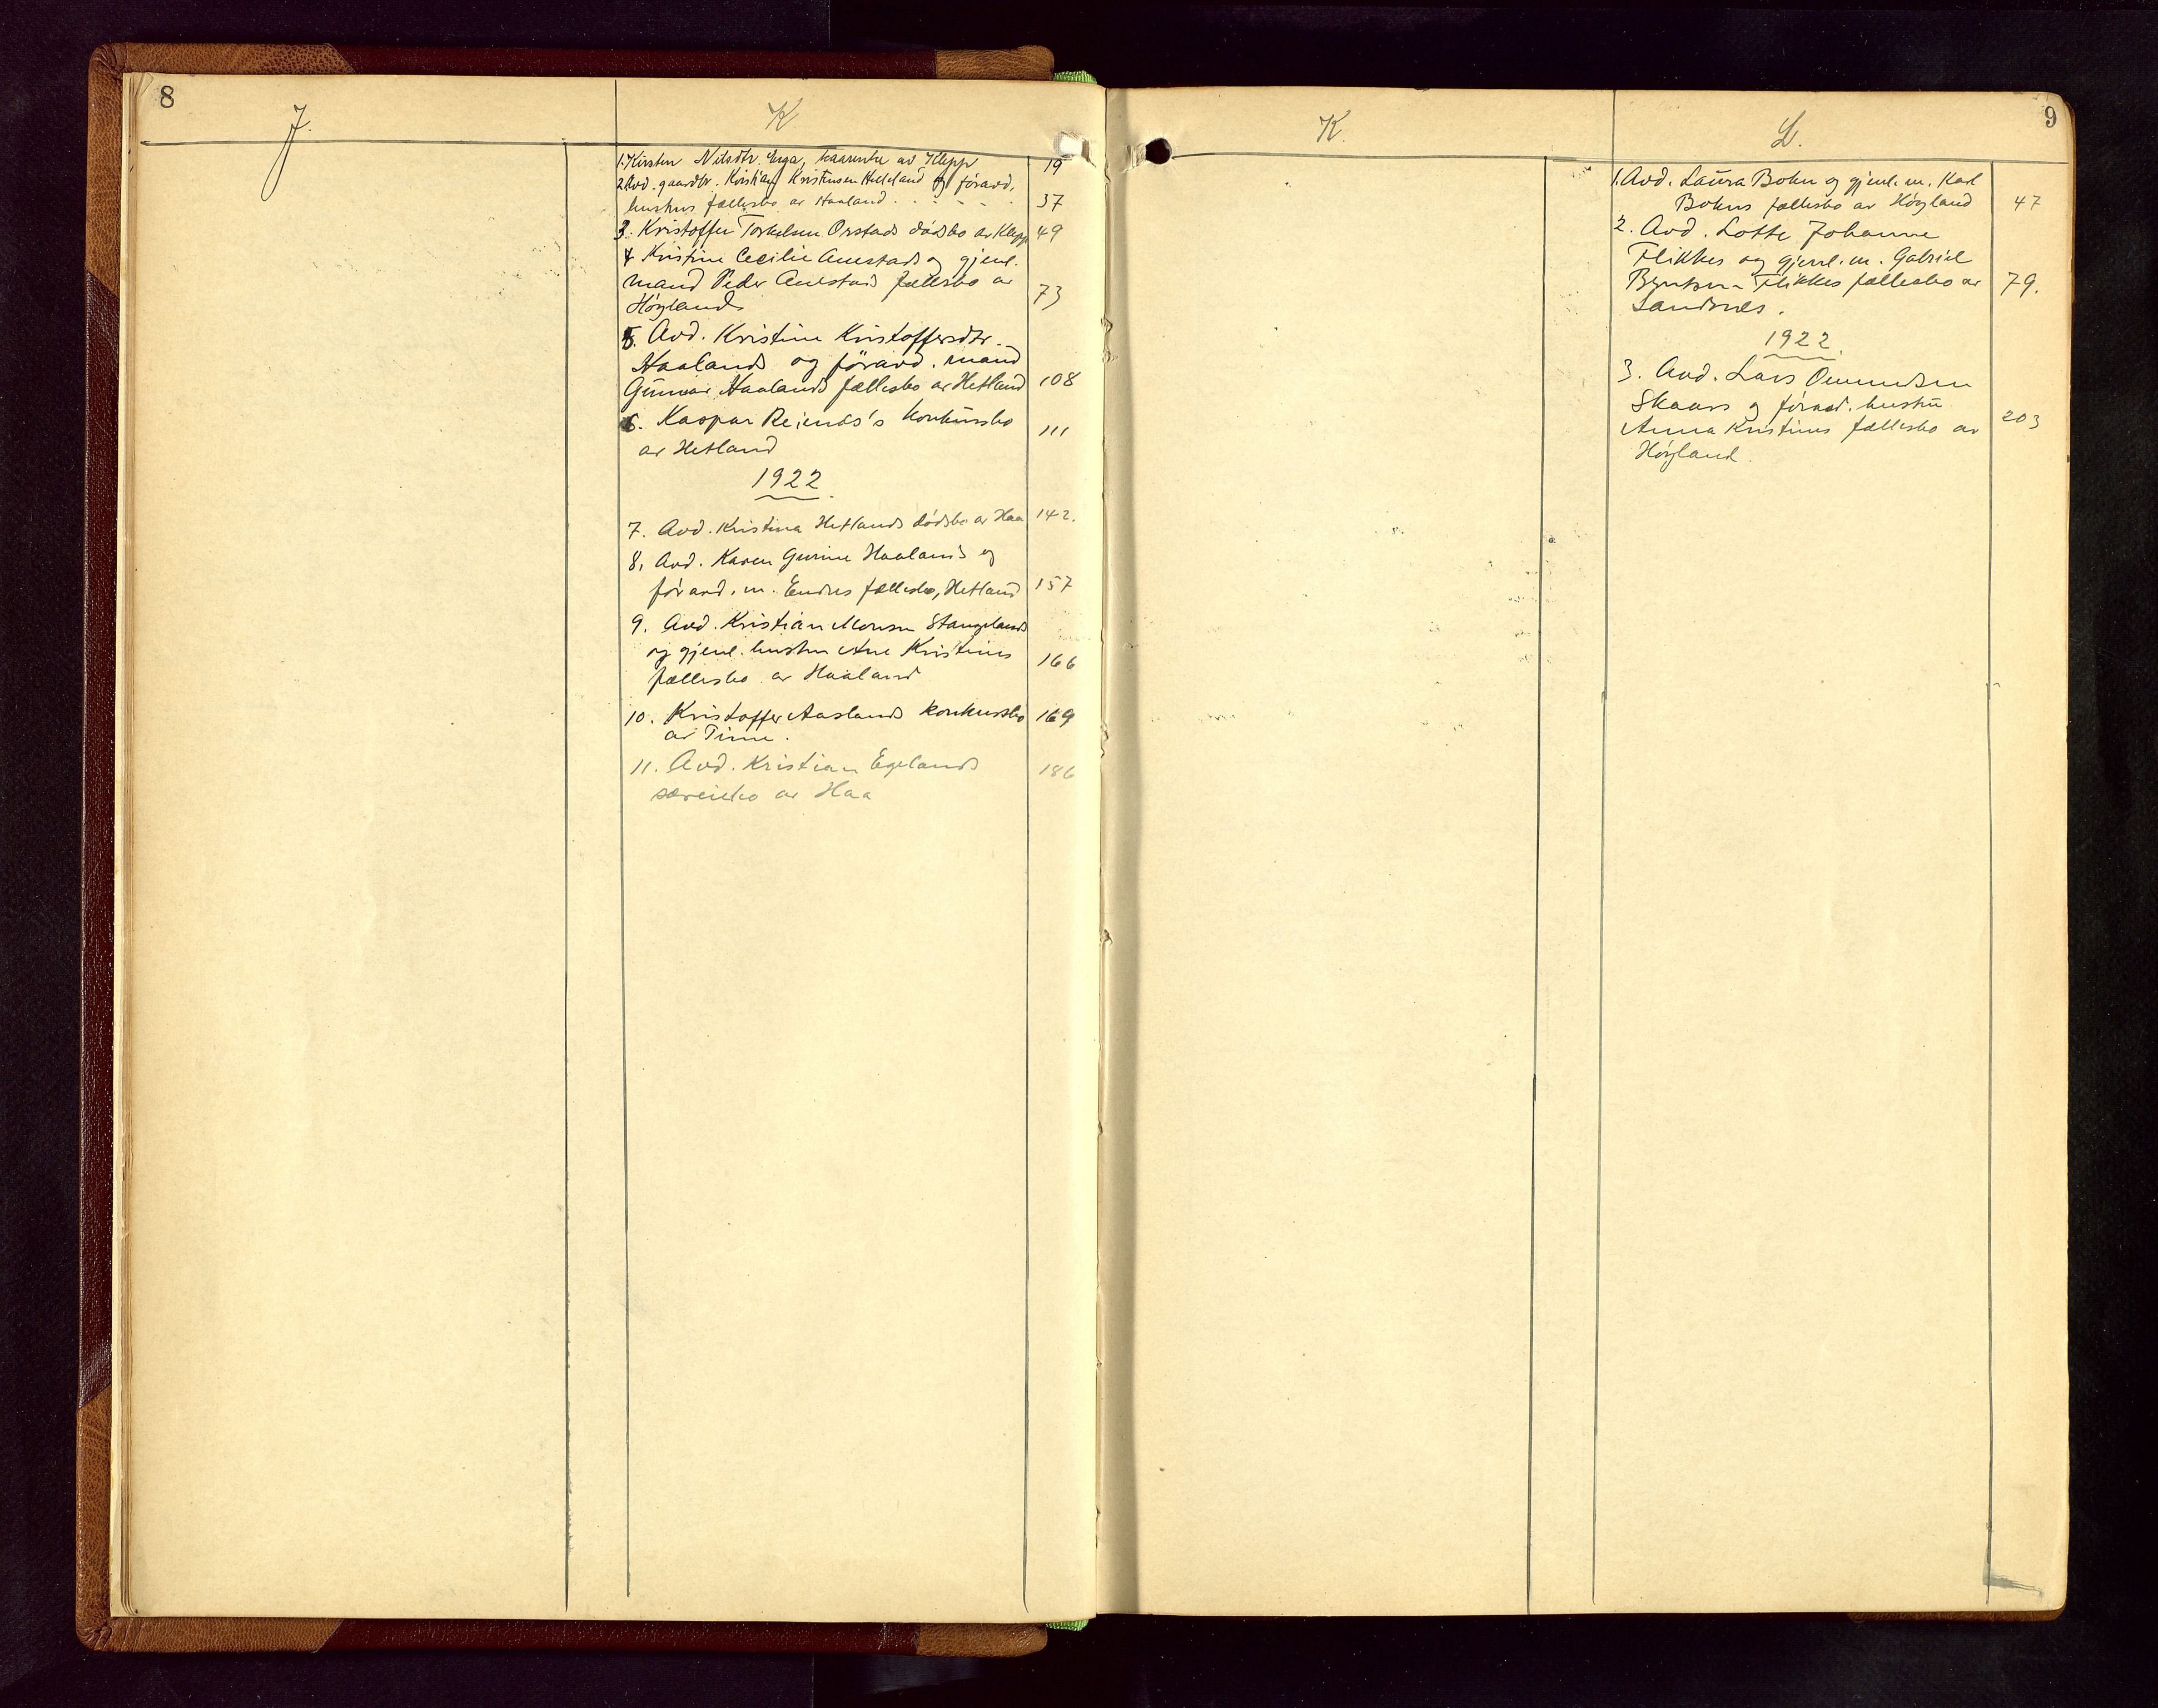 8
J.
K
1. Kirsten Nilsdtr. Erga, kaarenke av Klepp 19
2. Avd. gaardbr. Kristian Kristensen Helleland og föravd.
hustrus fællesbo av Haaland . . - - - . 37
3. Kristoffer Torkelsen Orstads dödsbo av Klepp 49
4 Kristine Cecilie Auestads og gjenl.
mand Peder Auestads fællesbo av 73
Höylands
5. Avd. Kristine Kristoffersdtr.
Haalands og föravd. mand
Gunnar Haalands fællesbo av Hetland 108
6. Kaspar Reienes's konkursbo 111
av Hetland
1922
7. Avd. Kristina Hetlands dödsbo av Haa 142.
8. Avd. Karen Gurine Haalands og
föravd. m. Endres fællesbo, Hetland 157
9. Avd. Kristian Monsen Stangelands
og gjenl. hustru Ane Kristines 166
fællesbo av Haaland
10. Kristoffer Aaslands konkursbo 169
av Time.
11. Avd. Kristian Egelands 186
særeiebo av Haa
9
K.
L.
1. Avd. Laura Bohn og gjenl. m. Karl
Bohns fællesbo av Höyland 47
2. Avd. Lotte Johanne
Flikkes og gjenl. m. Gabriel
Flikkes fællesbo av 79.
Sandnes.
1922.
3. Avd. Lars Ommundsen
Skaars og föravd. hustru 203
Anna Kristines fællesbo av
Höyland.